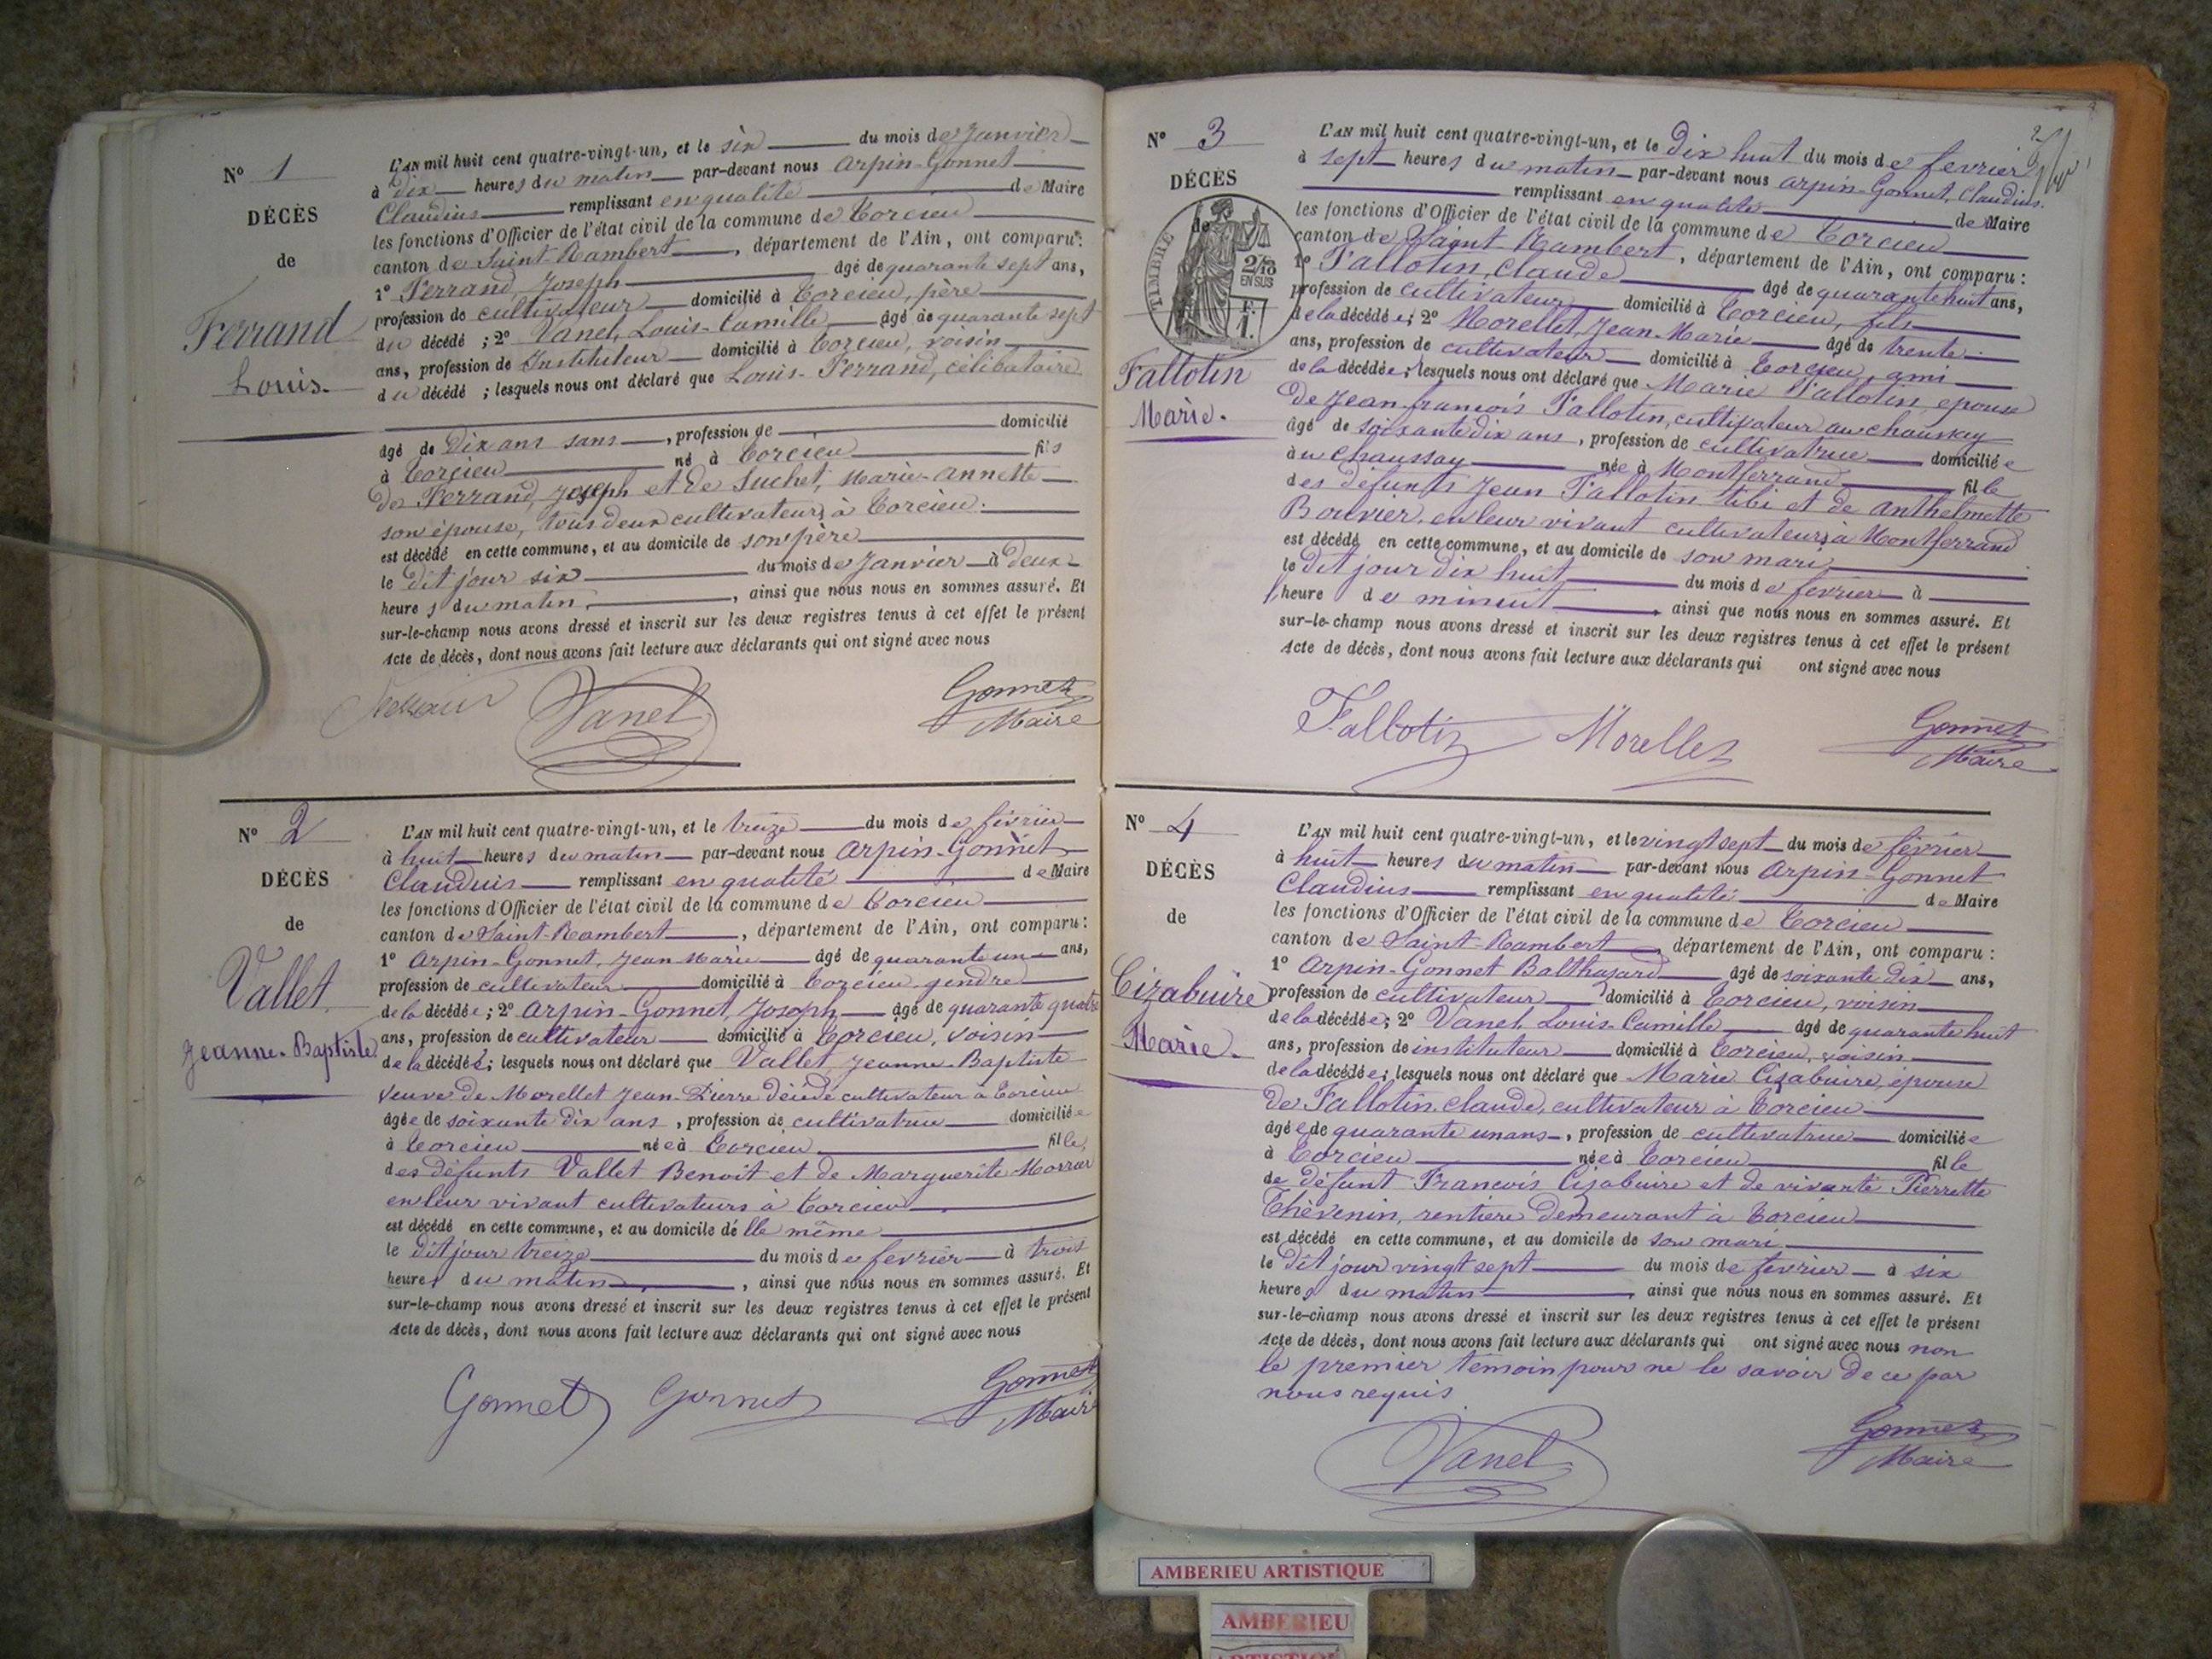 N° 1
DÉCÈS
de
Ferrand
Louis.
L'AN mil huit cent quatre-vingt-un, et le six du mois de Janvier
à dix heures du matin par-devant nous Arpin-Gonnet
Claudius remplissant en qualité de Maire
les fonctions d'Officier de l'état civil de la commune de Torcieu
canton de Saint-Rambert, département de l'Ain, ont comparu:
1° Ferrand, Joseph âgé de quarante sept ans,
profession de cultivateur domicilié à Torcieu, père
du décédé ; 2° Vanel, Louis-Camille âgé de quarante sept
ans, profession de Instituteur domicilié à Torcieu, voisin
du décédé ; lesquels nous ont déclaré que Louis-Ferrand, célibataire
âgé de Dix ans sans, profession de domicilié
à Torcieu né à Torcieu fils
de Ferrand, Joseph et de Suchet, Marie-Annette
son épouse, tous deux cultivateurs à Torcieu.
est décédé en cette commune, et au domicile de son père
le dit jour six du mois de Janvier à deux
heures du matin, ainsi que nous nous en sommes assuré. Et
sur-le-champ nous avons dressé et inscrit sur les deux registres tenus à cet effet le présent
Acte de décès, dont nous avons fait lecture aux déclarants qui ont signé avec nous
Vanel
Gonnet
Maire
N° 2
DÉCÈS
de
Vallet
Jeanne-Baptiste
L'AN mil huit cent quatre-vingt-un, et le treize du mois de février
à huit heures du matin par-devant nous Arpin-Gonnet
Claudius remplissant en qualité de Maire
les fonctions d'Officier de l'état civil de la commune de Torcieu
canton de Saint-Rambert, département de l'Ain, ont comparu:
1° Arpin-Gonnet, Jean Marie âgé de quarante un ans,
profession de cultivateur domicilié à Torcieu, gendre
de la décédée; 2° Arpin-Gonnet, Joseph âgé de quarante quatre
ans, profession de cultivateur domicilié à Torcieu, voisin
de la décédée; lesquels nous ont déclaré que Vallet, Jeanne-Baptiste
veuve de Morellet Jean-Pierre décédé cultivateur à Torcieu
âgée de soixante dix ans, profession de cultivatrice domiciliée
à Torcieu née à Torcieu fille
des défunts Vallet Benoit et de Marguerite
en leur vivant cultivateurs à Torcieu
est décédé en cette commune, et au domicile d'elle même
le dit jour treize du mois de février à trois
heures du matin, ainsi que nous nous en sommes assuré. Et
sur-le-champ nous avons dressé et inscrit sur les deux registres tenus à cet effet le présent
Acte de décès, dont nous avons fait lecture aux déclarants qui ont signé avec nous
Gonnet Gonnet Gonnet
Maire
N° 3
DÉCÈS
de
TIMBRE
2/10
EN SUS
F.
1.
Fallotin
Marie.
L'AN mil huit cent quatre-vingt-un, et le Dix huit du mois de février
à sept heures du matin par-devant nous Arpin-Gonnet, Claudius
remplissant en qualité de Maire
les fonctions d'Officier de l'état civil de la commune de Torcieu
canton de Saint-Rambert, département de l'Ain, ont comparu:
1° Fallotin, Claude âgé de quarante huit ans,
profession de cultivateur domicilié à Torcieu, fils
de la décédée; 2° Morellet, Jean-Marie âgé de trente
ans, profession de cultivateur domicilié à Torcieu, ami
de la décédée; lesquels nous ont déclaré que Marie Fallotin, épouse
de Jean-François Fallotin, cultivateur au
âgé de soixante dix ans, profession de cultivatrice domiciliée
au Chaussay née à Montferrand fille
des défunts Jean Fallotin tibi et de Anthelmette
Bouvier, en leur vivant cultivateurs à Montferrand
est décédé en cette commune, et au domicile de son mari
le dit jour dix huit du mois de février à
heure de minuit, ainsi que nous nous en sommes assuré. Et
sur-le-champ nous avons dressé et inscrit sur les deux registres tenus à cet effet le présent
Acte de décès, dont nous avons fait lecture aux déclarants qui ont signé avec nous
Fallotin Morellet Gonnet
Maire
N° 4
DÉCÈS
de
Cizabuire
Marie.
L'AN mil huit cent quatre-vingt-un, et le vingt sept du mois de février
à huit heures du matin par-devant nous Arpin-Gonnet
Claudius remplissant en qualité de Maire
les fonctions d'Officier de l'état civil de la commune de Torcieu
canton de Saint-Rambert, département de l'Ain, ont comparu:
1° Arpin-Gonnet Balthasard âgé de soixante dix ans,
profession de cultivateur domicilié à Torcieu, voisin
de la décédée; 2° Vanel, Louis-Camille âgé de quarante huit
ans, profession de instituteur domicilié à Torcieu, voisin
de la décédée; lesquels nous ont déclaré que Marie Cizabuire, épouse
de Fallotin, Claude, cultivateur à Torcieu
âgée de quarante un ans, profession de cultivatrice domiciliée
à Torcieu née à Torcieu fille
de défunt François Cizabuire et de vivante Pierrette
Thévenin, rentière demeurant à Torcieu
est décédé en cette commune, et au domicile de son mari
le dit jour vingt sept du mois de février à six
heures du matin, ainsi que nous nous en sommes assuré. Et
sur-le-champ nous avons dressé et inscrit sur les deux registres tenus à cet effet le présent
Acte de décès, dont nous avons fait lecture aux déclarants qui ont signé avec nous non
le premier témoin pour ne le savoir de ce par
nous requis
Vanel Gonnet
Maire
AMBERIEU ARTISTIQUE
AMBERIEU
ARTISTIQUE